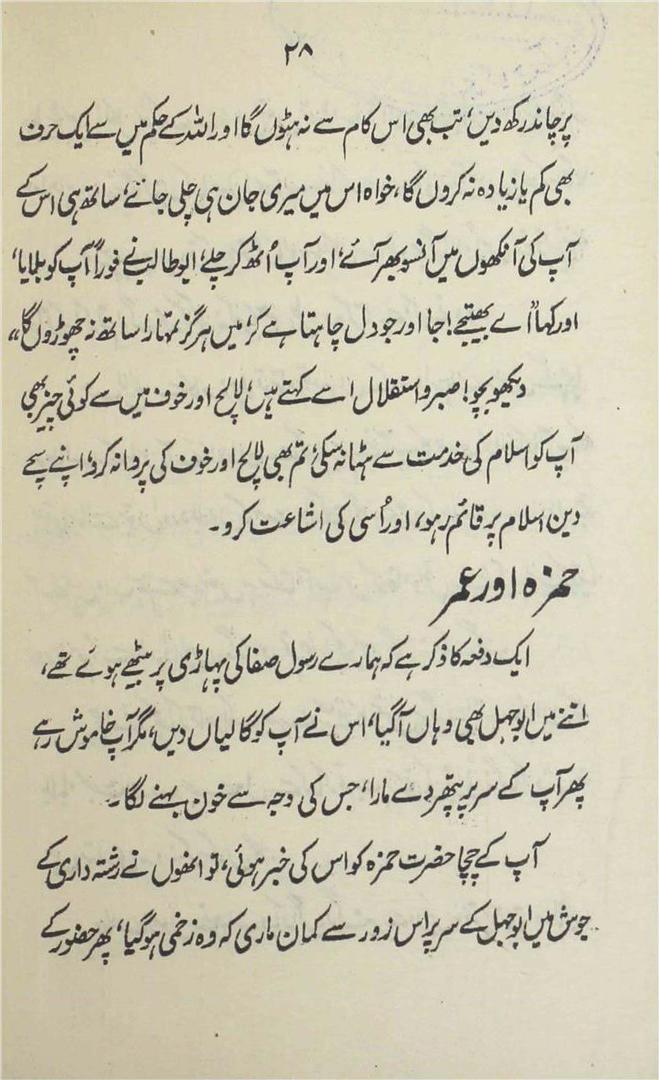 ۲۸
پر چاند رکھ دیں، تب بھی اس کام سے نہ ہٹوں گا اور اللہ کے حکم میں سے ایک حرف
بھی کم یا زیادہ نہ کروں گا، خواہ اس میں میری جان ہی چلی جائے، ساتھ ہی اس کے
آپ کی آنکھوں میں آنسو بھر آئے، اور آپ اُٹھ کر چلے، ابو طالب نے فوراً آپ کو بلایا،
اور کہا "اے بھتیجے! جا اور جو دل چاہتا ہے کر، میں ہرگز تمہارا ساتھ نہ چھوڑوں گا"
دیکھو بچو! صبر و استقلال اسے کہتے ہیں، لالچ اور خوف میں سے کوئی چیز بھی
آپ کو اسلام کی خدمت سے ہٹا نہ سکی، تم بھی لالچ اور خوف کی پروا نہ کرو، اپنے سچے
دین اسلام پر قائم رہو، اور اُسی کی اشاعت کرو۔
حمزہ اور عمر
ایک دفعہ کا ذکر ہے کہ ہمارے رسول صفا کی پہاڑی پر بیٹھے ہوئے تھے،
اتنے میں ابو جہل بھی وہاں آگیا، اس نے آپ کو گالیاں دیں، مگر آپ خاموش رہے
پھر آپ کے سر پر پتھر دے مارا، جس کی وجہ سے خون بہنے لگا۔
آپ کے چچا حضرت حمزہ کو اس کی خبر ہوئی، تو انھوں نے رشتہ داری کے
جوش میں ابو جہل کے سر پر اس زور سے کمان ماری کہ وہ زخمی ہوگیا، پھر حضور کے